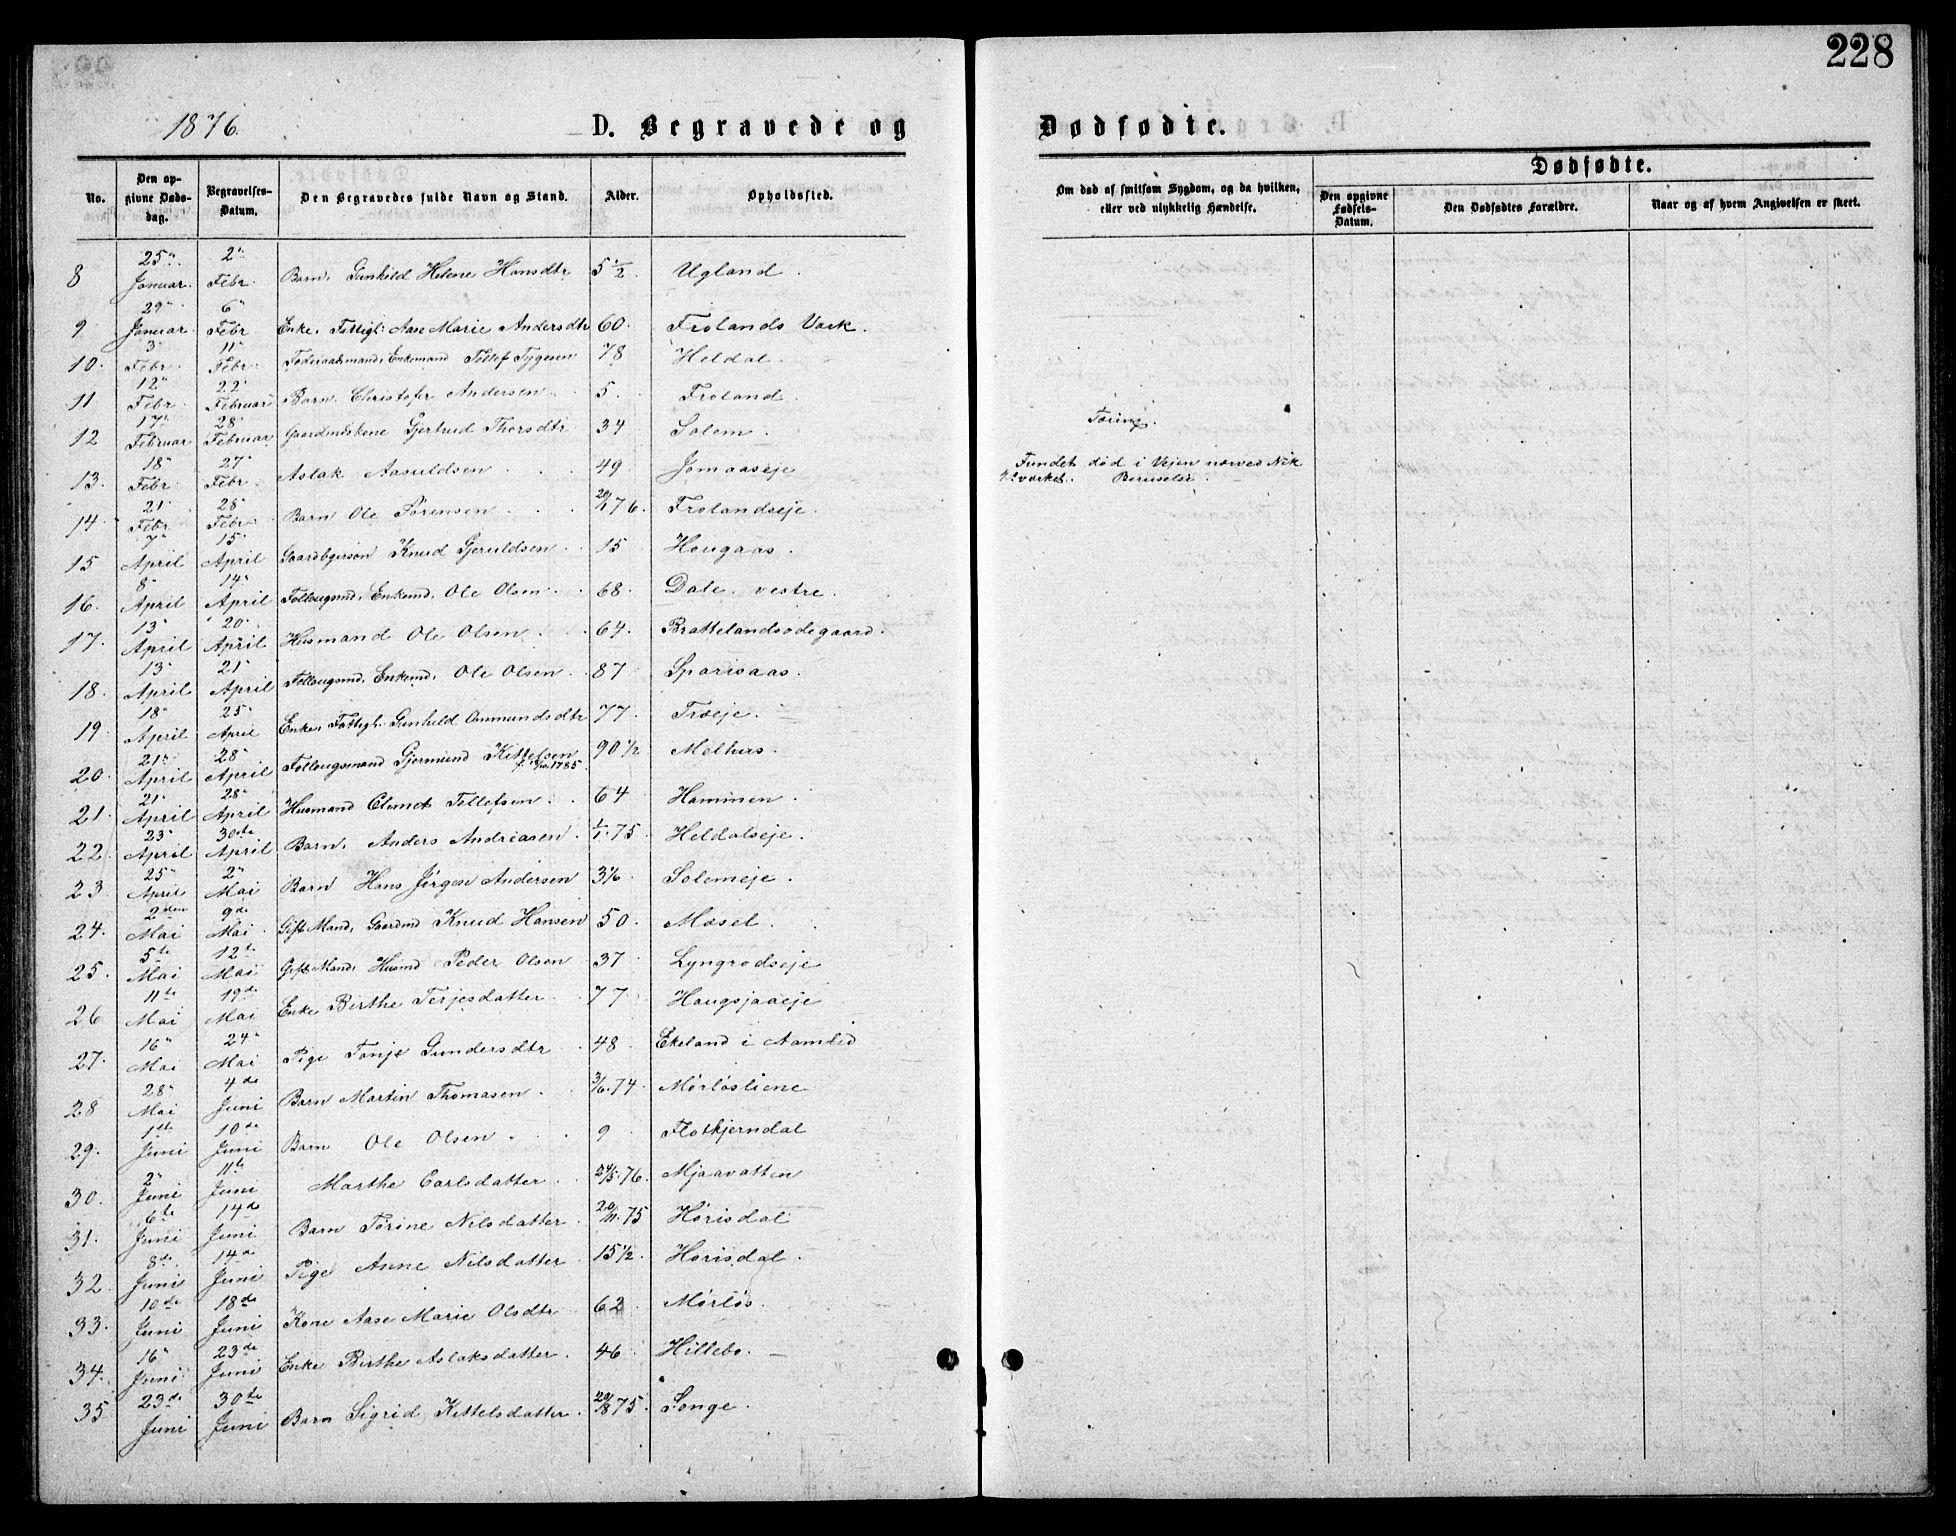 228
1876.
D. Begravede og Dødfødte.
No.
Den opgivne Dødsdag.
Begravelses-Datum.
Den Begravedes fulde Navn og Stand.
Alder.
Opholdssted.
Om død af smitsom Sygdom, og da hvilken, eller ved ulykkelig Hændelse.
Dødfødte.
Den opgivne Fødsels-Datum.
Den Dødfødtes Forældre.
Naar og af hvem Angivelsen er skeet.
8 25" Januar. 2" Febr. Barn. Gunhild Helene Hansdtr 5 1/2 Ugland.
9 29" Januar. 6" Febr Enke. Fattigl. Aase Marie Andersdtr 60. Frolands Værk.
10. 3" Febr. 11" Febr. Enkemand Tellef Tygesen 78 Heldal.
11 12" Febr. 22" Februar Barn. Christofer Andersen 5. Froland.
12 17" Februar 28" Februar Gjertrud Thorsdtr 34 Solem. Tæring.
13. 18" Febr. 27" Febr. Aslak Aasuldsen 49 Jomaaseje Fundet død i Vejen nærved Nikkelværket. Beruselse.
14. 21" Febr 28" Febr. Barn Ole Sørensen 20/1 76. Frolandseje.
15 7" April 15" April Knud Gjeruldsen 15 Hougaas.
16. 8" April 14" April Follougsmd, Enkemd, Ole Olsen 68. Dale. vestre.
17. 13" April 20" April Husmand Ole Olsen 64. Brattelandsødegaard.
18. 13" April 21" April Follougsmd, Enkemd, Ole Olsen 87 Sparsaas.
19. 18" April 25" April Enke, Fattigl. Gunhild Omundsdtr 77 Træje.
20. 21" April 28" April Follougsmand Gjermund Kittelsen 1785. 90 1/2 Melhus.
21. 21" April 28" April Husmand Clemet Tellefsen 64 Hammen.
22. 23" April 30te April Barn. Anders Andreasen 1/1. 75. Heldalseje.
23. 25" April 2" Mai Barn Hans Jørgen Andersen 3 1/6 Solemeje.
24. 2den Mai 9de Mai. Gift Mand, Gaardmd Knud Hansen 50 Mosel.
25. 5te Mai 12te Mai Gift Mand, Husmd Peder Olsen 37 Lyngrødseje
26 11te Mai 19de Mai Enke Birthe Terjesdatter 77 Haugsjaaeje
27. 16" Mai 24" Mai Pige Tonje Gundersdtr 48 Ekeland i Aamlid
28 28" Mai 4de Juni Barn Martin Thomasen. 3/6. 74. Mørløsliene
29. 1ste Juni 10de Juni Barn Ole Olsen 9 Flotkjerndal
30. 2" Juni 11te Juni Marthe Carlsdatter 24/5. 76. Mjaavatten
31. 6te Juni 14de Juni Barn Tørine Nilsdatter. 20/11. 75 Hørisdal
32. 8de Juni 14de Juni Pige Anne Nilsdatter 15 1/2. Hørisdal.
33. 10de Juni 18de Juni Kone Aase Marie Olsdtr 62 Mørløs.
34. 16" Juni 23de Juni Enke Birthe Aslaksdatter. 46. Hillebo.
35 23de Juni 30te Juni Barn Sigrid Kittelsdatter. 29/8 75. Songe.